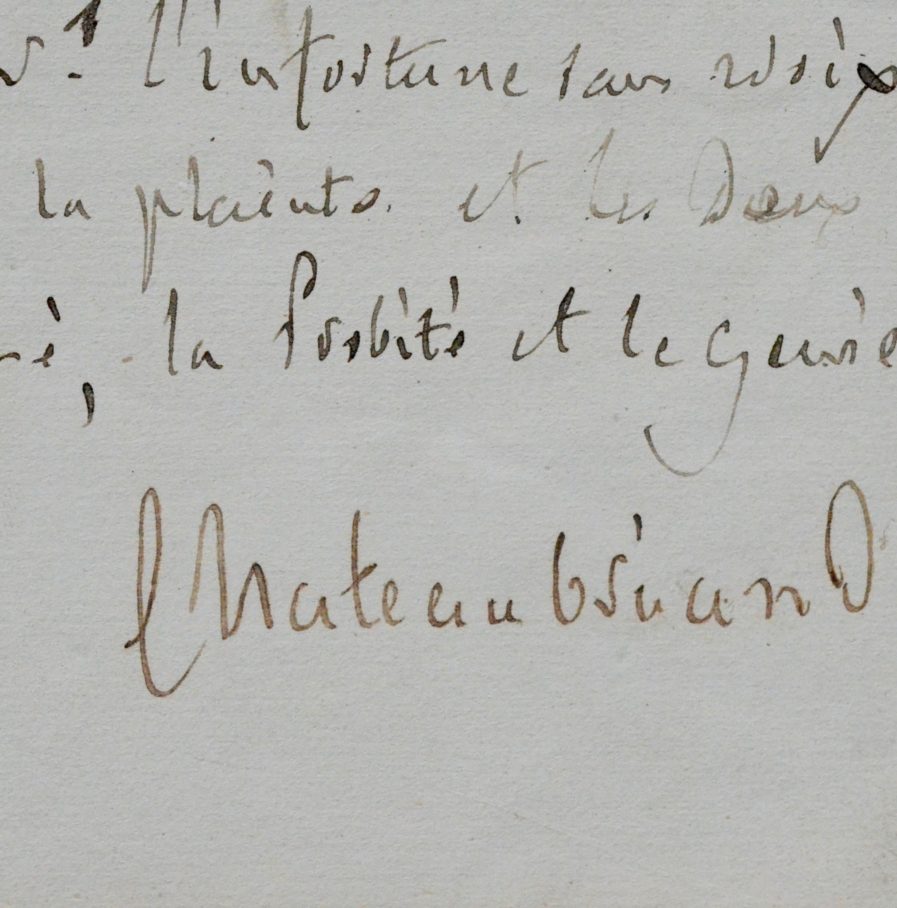 l'infortune sans
la plainte. et les Deux
la Probité et le génie
Chateaubriand